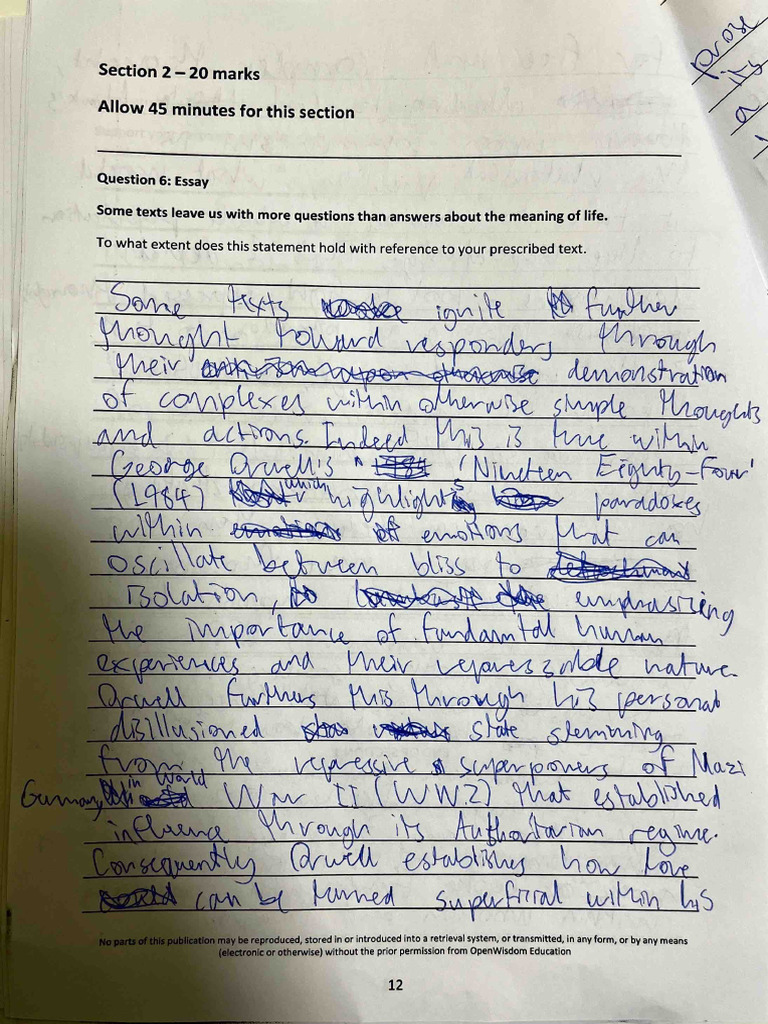 prose
its
a
Section 2 – 20 marks
Allow 45 minutes for this section
Question 6: Essay
Some texts leave us with more questions than answers about the meaning of life.
To what extent does this statement hold with reference to your prescribed text.
Some texts ignite further
thought toward responders through
their demonstration
of complexes within otherwise simple thoughts
and actions. Indeed this is true within
George Orwell's 'Nineteen Eighty-Four'
(1984) which highlights paradoxes
within of emotions that can
oscillate between bliss to
isolation, emphasizing
the importance of fundamntal human
experiences and their repressable nature.
Orwell furthers this through his personal
disillusioned state stemming
from the repressive superpowers of Nazi
Germany in World War II (WW2) that established
influence through its Authoritarian regime.
Consequently Orwell establishes how love
can be turned superficial within his
No parts of this publication may be reproduced, stored in or introduced into a retrieval system, or transmitted, in any form, or by any means
(electronic or otherwise) without the prior permission from OpenWisdom Education
12